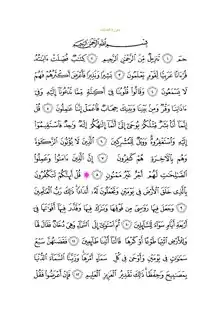 سُورَةُ فُصِّلَتۡ
بِسۡمِ ٱللَّهِ ٱلرَّحۡمَٰنِ ٱلرَّحِيمِ
حمٓ ١ تَنزِيلٞ مِّنَ ٱلرَّحۡمَٰنِ ٱلرَّحِيمِ ٢ كِتَٰبٞ فُصِّلَتۡ ءَايَٰتُهُۥ
قُرۡءَانًا عَرَبِيّٗا لِّقَوۡمٖ يَعۡلَمُونَ ٣ بَشِيرٗا وَنَذِيرٗا فَأَعۡرَضَ أَكۡثَرُهُمۡ فَهُمۡ
لَا يَسۡمَعُونَ ٤ وَقَالُواْ قُلُوبُنَا فِيٓ أَكِنَّةٖ مِّمَّا تَدۡعُونَآ إِلَيۡهِ وَفِيٓ
ءَاذَانِنَا وَقۡرٞ وَمِنۢ بَيۡنِنَا وَبَيۡنِكَ حِجَابٞ فَٱعۡمَلۡ إِنَّنَا عَٰمِلُونَ ٥ قُلۡ
إِنَّمَآ أَنَا۠ بَشَرٞ مِّثۡلُكُمۡ يُوحَىٰٓ إِلَيَّ أَنَّمَآ إِلَٰهُكُمۡ إِلَٰهٞ وَٰحِدٞ فَٱسۡتَقِيمُوٓاْ
إِلَيۡهِ وَٱسۡتَغۡفِرُوهُۗ وَوَيۡلٞ لِّلۡمُشۡرِكِينَ ٦ ٱلَّذِينَ لَا يُؤۡتُونَ ٱلزَّكَوٰةَ
وَهُم بِٱلۡأٓخِرَةِ هُمۡ كَٰفِرُونَ ٧ إِنَّ ٱلَّذِينَ ءَامَنُواْ وَعَمِلُواْ
ٱلصَّٰلِحَٰتِ لَهُمۡ أَجۡرٌ غَيۡرُ مَمۡنُونٖ ٨ ۞ قُلۡ أَئِنَّكُمۡ لَتَكۡفُرُونَ
بِٱلَّذِي خَلَقَ ٱلۡأَرۡضَ فِي يَوۡمَيۡنِ وَتَجۡعَلُونَ لَهُۥٓ أَندَادٗاۚ ذَٰلِكَ رَبُّ ٱلۡعَٰلَمِينَ
٩ وَجَعَلَ فِيهَا رَوَٰسِيَ مِن فَوۡقِهَا وَبَٰرَكَ فِيهَا وَقَدَّرَ فِيهَآ أَقۡوَٰتَهَا فِيٓ
أَرۡبَعَةِ أَيَّامٖ سَوَآءٗ لِّلسَّآئِلِينَ ١٠ ثُمَّ ٱسۡتَوَىٰٓ إِلَى ٱلسَّمَآءِ وَهِيَ دُخَانٞ فَقَالَ لَهَا
وَلِلۡأَرۡضِ ٱئۡتِيَا طَوۡعًا أَوۡ كَرۡهٗا قَالَتَآ أَتَيۡنَا طَآئِعِينَ ١١ فَقَضَىٰهُنَّ سَبۡعَ
سَمَٰوَاتٖ فِي يَوۡمَيۡنِ وَأَوۡحَىٰ فِي كُلِّ سَمَآءٍ أَمۡرَهَاۚ وَزَيَّنَّا ٱلسَّمَآءَ ٱلدُّنۡيَا
بِمَصَٰبِيحَ وَحِفۡظٗاۚ ذَٰلِكَ تَقۡدِيرُ ٱلۡعَزِيزِ ٱلۡعَلِيمِ ١٢ فَإِنۡ أَعۡرَضُواْ فَقُلۡ